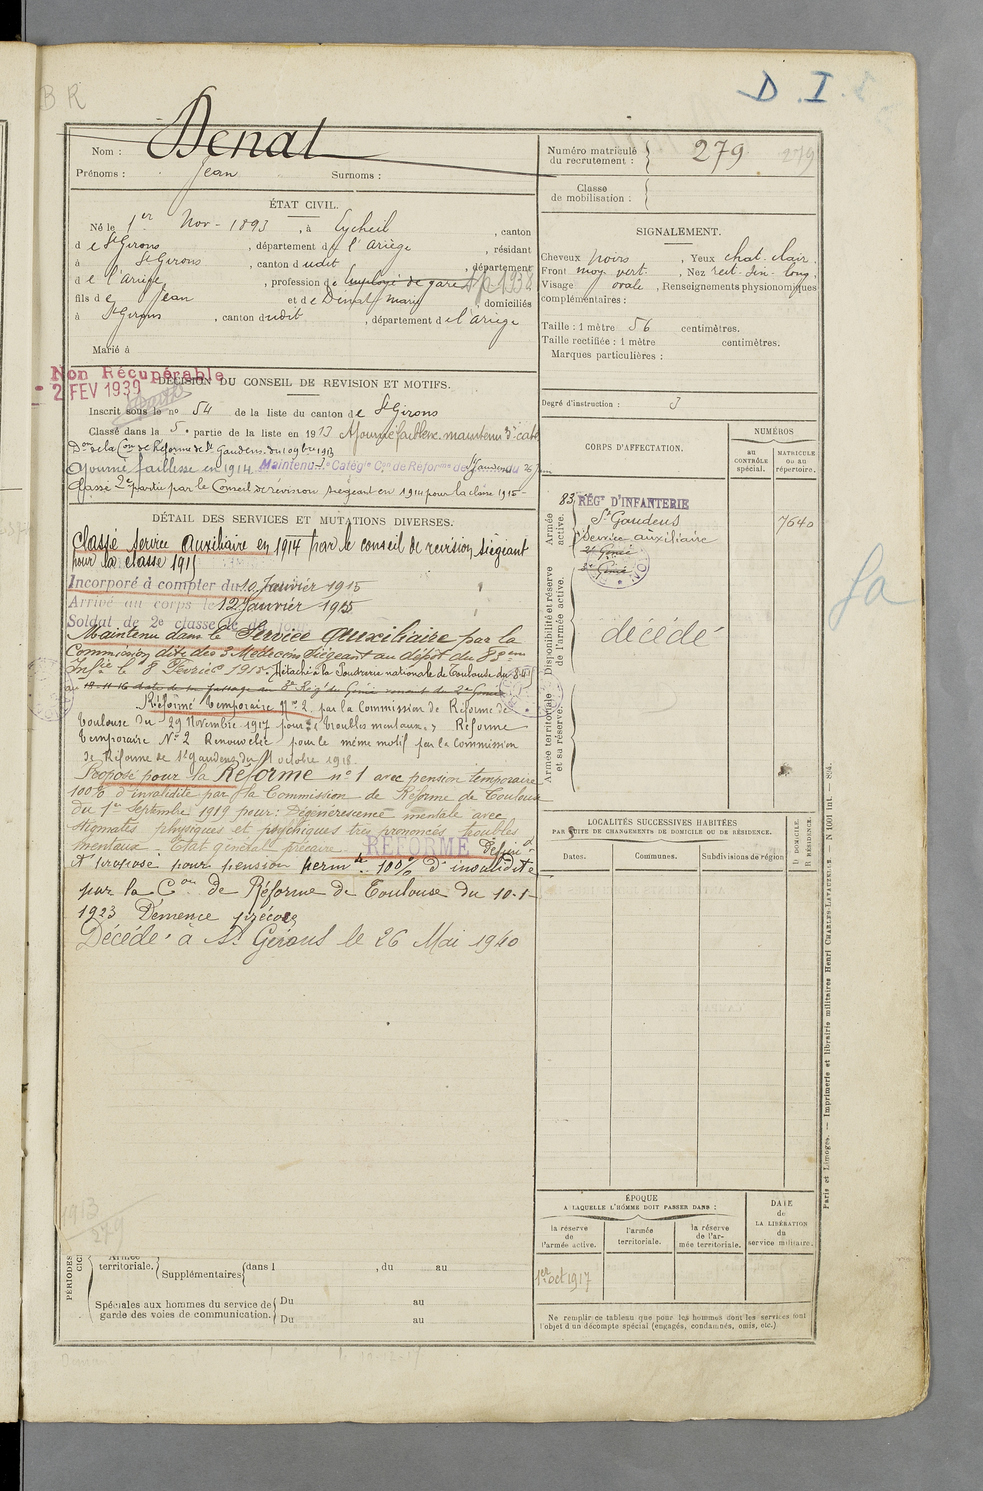 B R
D.I
Nom : Denat
Prénoms : Jean Surnoms :
ÉTAT CIVIL.
Né le 1er Nov - 1893, à Eycheil, canton
d e St Girons, département de l'Ariège, résidant
à St Girons, canton dudit, département
d e l'Ariège, profession de Employé de gare
fils de Jean et de Denat mary, domiciliés
à St Girons, canton dudit, département de l'ariège
Marié à
Non Récupérable
- 2 FEV 1939
DÉCISION DU CONSEIL DE REVISION ET MOTIFS.
Inscrit sous le no 54 de la liste du canton de St Girons
Classé dans la 5e partie de la liste en 1913 Ajourné faiblesse. maintenu
Don de la Con de Réforme de St Gaudens du 1913
Ajourné faiblesse en 1914 Maintenu de Réforme de St Gaudens du 26
Classé 2e partie par le Conseil de révision siégeant en 1914 pour la classe 1915 -
DÉTAIL DES SERVICES ET MUTATIONS DIVERSES.
Classé service auxiliaire en 1914 par le conseil de revision siégeant
pour la classe 1915
Incorporé à compter du 10 Janvier 1915
Arrivé au corps le 12 Janvier 1915
Soldat de 2e classe
Maintenu dans le Service auxiliaire par la
Commission dite des 3 Médecins siégeant au dépôt du 83eme
Infie le 8 Février 1915. Détaché à la Poudrerie nationale de Toulouse du
au 19-11-16 date de son passage au 8e Régt du Génie venant du 2e Génie
Réformé temporaire No 2 par la Commission de Réforme de
Toulouse du 29 Novembre 1917 pour : « troubles mentaux. » Réforme
temporaire No 2 Renouvelée pour le même motif par la Commission
de Réforme de St Gaudens du 11 octobre 1918.
Proposé pour la Réforme no 1 avec pension temporaire
100% d'invalidité par la Commission de Réforme de Toulouse
du 1er Septembre 1919 pour: Dégénérescence mentale avec
stigmates physiques et psychiques très prononcés, troubles
mentaux - Etat général précaire. RÉFORMÉ Défini
et proposé pour pension permte. 100% d'invalidité
par la Con de Réforme de Toulouse du 10-1-
1923 Démence précoce
Décédé à St Girons le 26 Mai 1940
1913
279
PÉRIODES
Armée
territoriale. Supplémentaires dans l , du au
Spéciales aux hommes du service de
garde des voies de communication. Du au
Du au
Numéro matricule
du recrutement : 279 279
Classe
de mobilisation :
SIGNALEMENT.
Cheveux noirs, Yeux chat. clair.
Front moy vert., Nez rect-sin-long.
Visage ovale, Renseignements physionomiques
complémentaires :
Taille : 1 mètre 56 centimètres.
Taille rectifiée : 1 mètre centimètres.
Marques particulières :
Degré d'instruction : 3
CORPS D'AFFECTATION.
NUMÉROS
au
CONTRÔLE
spécial.
MATRICULE
ou au
répertoire.
Armée
active.
83e RÉGt D'INFANTERIE
St Gaudens 7640
Service auxiliaire
2e Génie
8e Génie
Disponibilité et réserve
de l'armée active.
décédé
Armée territoriale
et sa réserve.
LOCALITÉS SUCCESSIVES HABITÉES
PAR SUITE DE CHANGEMENTS DE DOMICILE OU DE RÉSIDENCE.
Dates. Communes. Subdivisions de région
D. DOMICILE.
R. RÉSIDENCE.
ÉPOQUE
A LAQUELLE L'HOMME DOIT PASSER DANS :
la réserve
de
l'armée active.
l'armée
territoriale.
la réserve
de l'ar-
mée territoriale.
DATE
de
LA LIBÉRATION
du
service militaire.
1er oct 1917
Ne remplir ce tableau que pour les hommes dont les services font
l'objet d'un décompte spécial (engagés, condamnés, omis, etc.)
Paris et Limoges. — Imprimerie et librairie militaires Henri CHARLES-LAVAUZELLE. — N 1001 int.